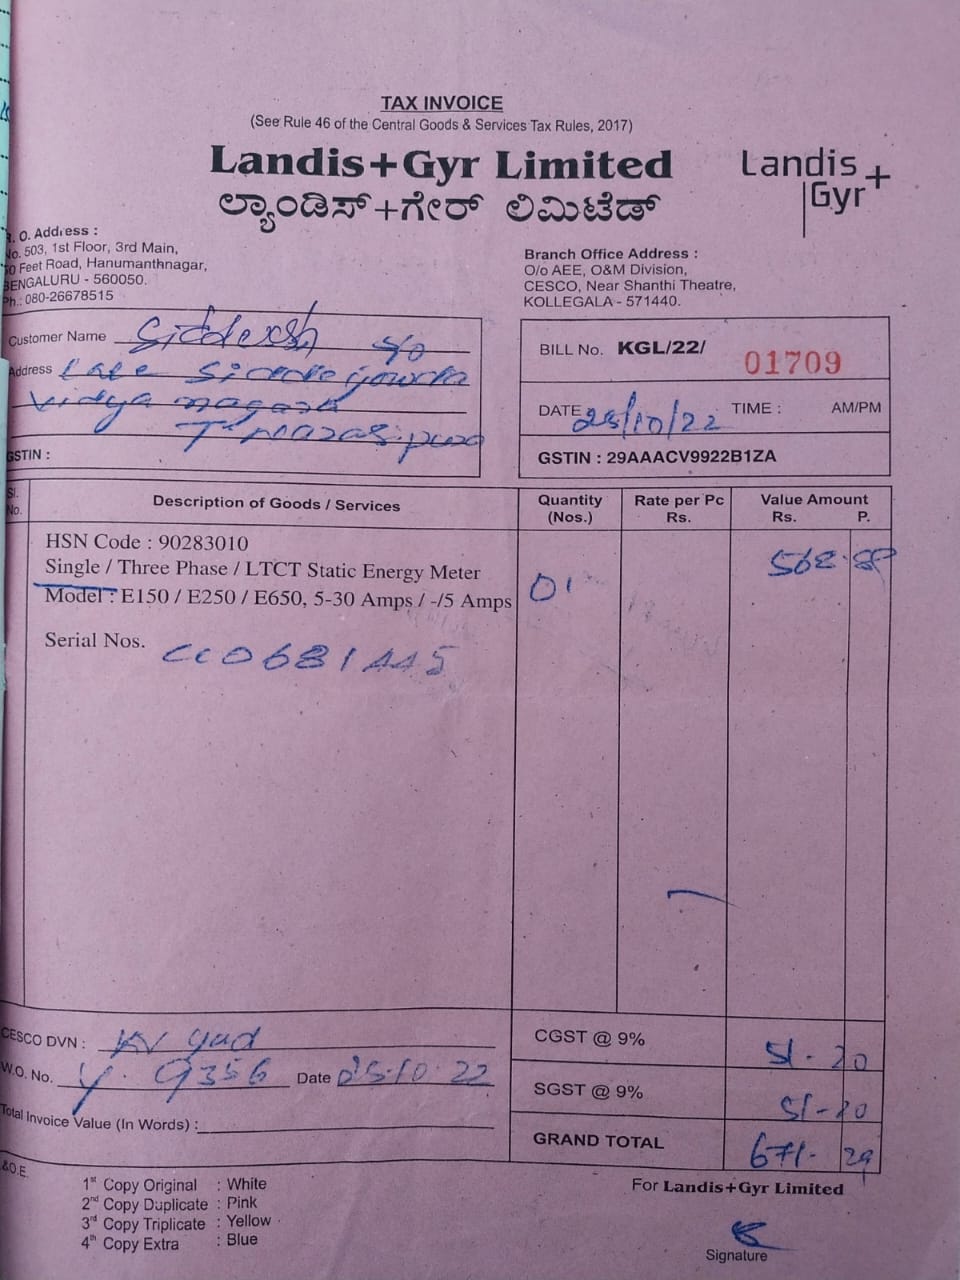 TAX INVOICE
(See Rule 46 of the Central Goods & Services Tax Rules, 2017)
Landis+Gyr Limited
ಲ್ಯಾಂಡಿಸ್+ಗೇರ್ ಲಿಮಿಟೆಡ್
Landis+
Gyr
R. O. Address :
No. 503, 1st Floor, 3rd Main,
Feet Road, Hanumanthnagar,
BENGALURU - 560050.
Ph.: 080-26678515
Branch Office Address :
O/o AEE, O&M Division,
CESCO, Near Shanthi Theatre,
KOLLEGALA - 571440.
Customer Name Siddersh S/o
Address Late
Vidya nagara
T
GSTIN :
BILL No. KGL/22/ 01709
DATE 25/10/22 TIME : AM/PM
GSTIN : 29AAACV9922B1ZA
Sl. No. Description of Goods / Services Quantity (Nos.) Rate per Pc Rs. Value Amount Rs. P.
HSN Code : 90283010
Single / Three Phase / LTCT Static Energy Meter
Model : E150 / E250 / E650, 5-30 Amps / -/5 Amps
01
Serial Nos. CC0681445
CESCO DVN :
W.O. No. Y. 9356 Date 25.10.22
Total Invoice Value (In Words) :
CGST @ 9% 51-20
SGST @ 9% 51-20
GRAND TOTAL 671- 29
&O.E.
1st Copy Original : White
2nd Copy Duplicate : Pink
3rd Copy Triplicate : Yellow
4th Copy Extra : Blue
For Landis+Gyr Limited
Signature